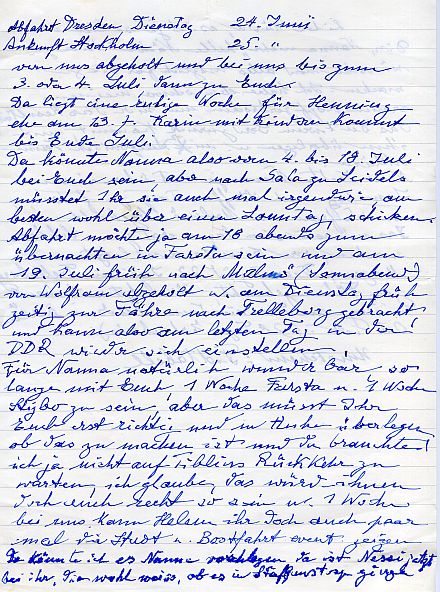 Abfahrt Dresden, Dienstag 24. Juni
Ankunft Stockholm 25. "
von uns abgeholt und bei uns bis zum
3. oda 4. Juli dann zu Euch.
Da liegt eine ruhige Woche für Henning
ehe am 13. 7. Karin mit Kindern kommt
bis Ende Juli.
Da könnte Nanna also vom 4. bis 18. Juli
bei Euch sein, aber nach Sala zu Seidels
müsstet Ihr sie auch mal irgendwie, am
besten wohl über einen Sonntag, schicken.
Abfahrt möchte ja am 18 abends zum
übernachten in Farsta sein und am
19. Juli früh nach Malmö (Sonnabend)
von Wolfram abgeholt u. am Dienstag früh
zeitig zur Fähre nach Trelleborg gebracht
und kann also am letzten Tag in der
DDR wieder sich einstellen.
Für Nanna natürlich wunderbar, so
lange mit Euch 1 Woche Farsta u. 1 Woche
zu sein, aber das müsst Ihr
Euch erst richtig und in Ruhe überlegen
ob das zu machen ist und da brauchte
ich ja nicht auf Rückkehr zu
warten, ich glaube, das wird ihnen
doch auch recht so sein u. 1 Woche
bei uns kann ihr doch auch paar
mal die Stadt u. Bootfahrt event. zeigen
Da könnte ich es Nanna vorschlagen, da ist jetzt
bei ihr, die wohl weiss, ob es in